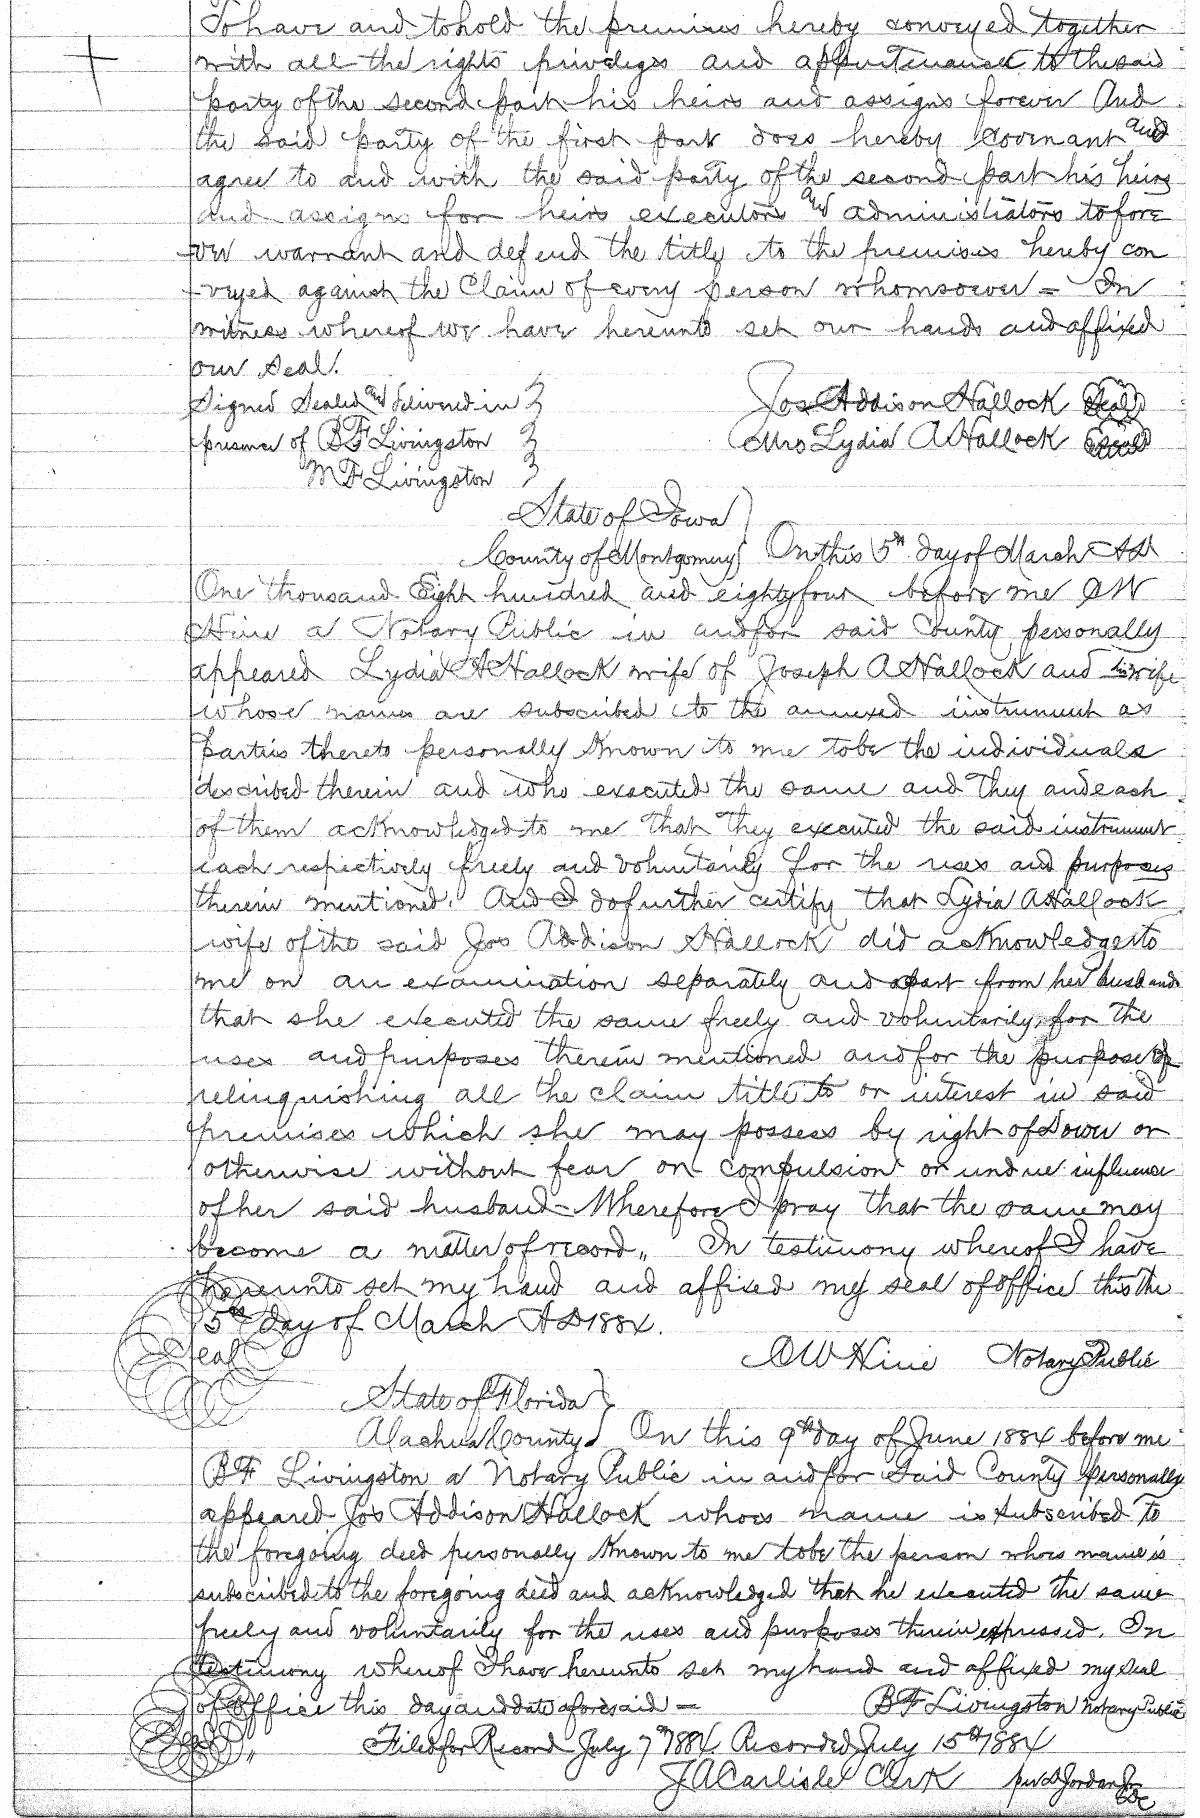 To have and to hold the premises hereby conveyed together
with all the rights privileges and appurtenances to the said
party of the second part his heirs and assigns forever And
the said party of the first part does hereby covenant and
agree to and with the said party of the second part his heirs
and assigns for heirs executors and administrators to fore
ver warrant and defend the title to the premises hereby con
veyed against the Claim of every person whomsoever = In
witness whereof we have hereunto set our hands and affixed
our seal.
Signed Sealed and delivered in } Jos Addison Hallock Seal
presence of B F Livingston } Mrs Lydia A Hallock Seal
M F Livingston }
State of Iowa }
County of Montgomery } On this 5th day of March AD
One thousand Eight hundred and eighty four before me OW
Hine a Notary Public in and for said County personally
appeared Lydia A Hallock wife of Joseph A Hallock and his wife
whose names are subscribed to the annexed instrument as
parties thereto personally Known to me to be the individuals
described therein and who executed the same and they and each
of them acknowledged to me that they executed the said instrument
each respectively freely and voluntarily for the uses and purposes
therein mentioned. And I do further certify that Lydia A Hallock
wife of the said Jos Addison Hallock did acknowledge to
me on an examination separately and apart from her husband
that she executed the same freely and voluntarily, for the
uses and purposes therein mentioned and for the purpose of
relinquishing all the claim title to or interest in said
premises which she may possess by right of Dower or
otherwise without fear or compulsion or undue influence
of her said husband - Wherefore I pray that the same may
become a matter of record,, In testimony whereof I have
hereunto set my hand and affixed my seal of office this the
5th day of March AD 1884.
Seal OW Hine Notary Public
State of Florida }
Alachua County } On this 9th day of June 1884 before me
B F Livingston a Notary Public in and for Said County personally
appeared Jos Addison Hallock whoes name is subscribed to
the foregoing deed personally Known to me to be the person whoes name is
subscribed to the foregoing deed and acknowledged that he executed the same
freely and voluntarily for the uses and purposes therein expressed. In
testimony whereof I have hereunto set my hand and affixed my seal
of office this day and date aforesaid = B F Livingston Notary Public
Seal ,, Filed for Record July 7th 1884 Recorded July 15th 1884
J A Carlisle Clerk per D Jordan Jr
DC